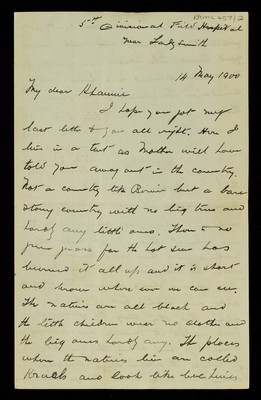 RAMC 257/2
5th Divisional Field Hospital
near Ladysmith
14 May 1900
My dear
I hope you got my
last letter to you all right. Here I
live in a tent as Mother will have
told you away out in the country.
Not a country like but a bare
stony country with no big trees and
hardly any little ones. There is no
green grass for the hot sun has
burned it all up and it is short
and brown where ever we can see.
The natives are all black and
the little children wear no clothes and
the big ones hardly any. The places
where the natives live are called
Kraals and look like bee hives